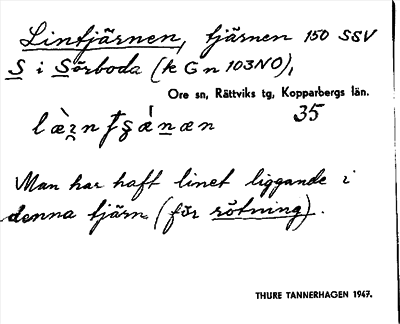 Lintjärnen, tjärnen 150 SSV
S i Sörboda (k G n 103NO),
Ore sn, Rättviks tg, Kopparbergs län.
35
Man har haft linet liggande i
denna tjärn (för rötning).
THURE TANNERHAGEN 1947.